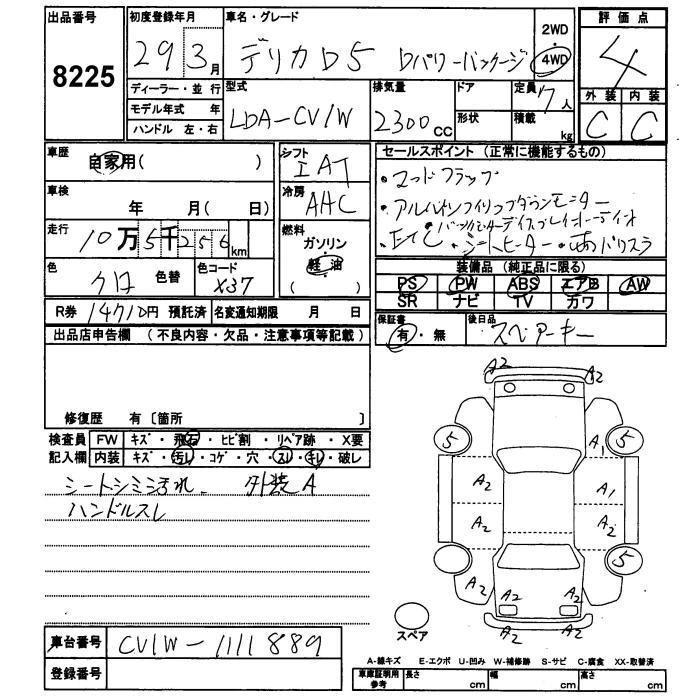 出品番号 8225
初度登録年月 29 3月
車名・グレード デリカD5 Dパワーパッケージ
2WD
4WD
評価点 4
外装 内装
C C
ディーラー・並行
モデル年式 年
ハンドル 左・右
型式 LDA-CV1W
排気量 2300CC
ドア
形状
定員 7人
積載 kg
車歴 自家用( )
車検 年 月( 日)
走行 10万5千256km
色 クロ 色替
色コード X37
シフト IAT
冷房 AHC
燃料
ガソリン
軽油
セールスポイント (正常に機能するもの)
・マッドフラップ
・アルパインフィリップダウンモニター
・ETC・シートヒーター・両パワスラ
装備品(純正品に限る)
PS PW ABS エアB AW
SR ナビ TV カワ
R券 14710円 預託済 名変通知期限 月 日
保証書
有・無
後日品 スペアーキー
出品店申告欄 (不良内容・欠品・注意事項等記載)
修復歴 有〔箇所
検査員 FW キズ・飛石・ヒビ割・リペア跡・X要
記入欄 内装 キズ・汚レ・コゲ・穴・スレ・キレ・破レ
シートシミ汚れ、 外装A
ハンドルスレ
A2 A2
5 5
A1
A2 A1
A2 A2
5
A2 A2 A2 A2
A2 A2
スペア
A-線キズ E-エクボ U-凹み W-補修跡 S-サビ C-腐食 XX-取替済
車台番号 CV1W-1111889
登録番号
車庫証明用
参考
長さ cm 幅 cm 高さ cm